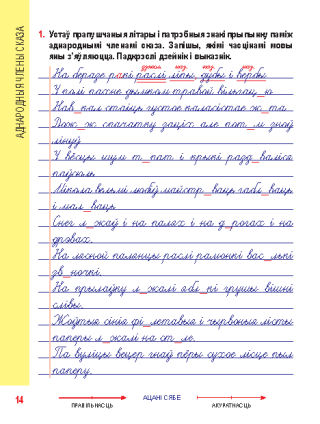 АДНАРОДНЫЯ ЧЛЕНЫ СКАЗА
1. Устаў прапушчаныя літары і патрэбныя знакі прыпынку паміж
аднароднымі членамі сказа. Запішы, якімі часцінамі мовы
яны з'яўляюцца. Падкрэслі дзейнік і выказнік.
наз. наз.
На беразе ракі раслі ліпы, дубы і вербы.
У полі пахне дымком травой вільгац_ю
Нав_кал стаіць густое каласістае ж_та.
Дож_ж спачатку заціх але пот_м зноў
лінуў
У вёсцы шум т_пат і крыкі разд_валіся
паўсюль
Мікола вельмі любіў майстр_ваць габл_ваць
і мал_ваць
Снег л_жаў і на палях і на д_рогах і на
дрэвах.
На лясной палянцы раслі рамонкі вас_лькі
зв_ночкі.
На прылаўку л_жалі ябл_кі грушы вішні
слівы.
Жоўтыя сінія фі_летавыя і чырвоныя лісты
паперы л_жалі на ст_ле.
Па вуліцы вецер гнаў пёры сухое лісце пыл
паперу.
14
ПРАВІЛЬНАСЦЬ
АЦАНІ СЯБЕ
АКУРАТНАСЦЬ